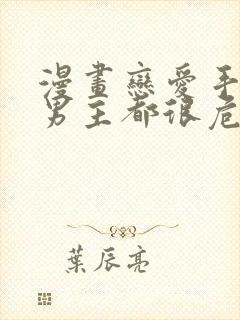 漫畫戀愛手
男主都很危
葉辰亮